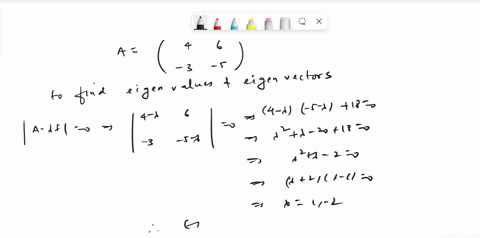 A = ( 4 6
-3 -5 )
to find eigen values & eigen vectors
|A-λI|=0 ⇒ | 4-λ 6
-3 -5-λ | =0 ⇒ (4-λ) (-5-λ) +18=0
⇒ λ²+λ-20+18=0
⇒ λ²+λ-2=0
⇒ (λ+2)(λ-1)=0
⇒ λ = 1,-2
∴